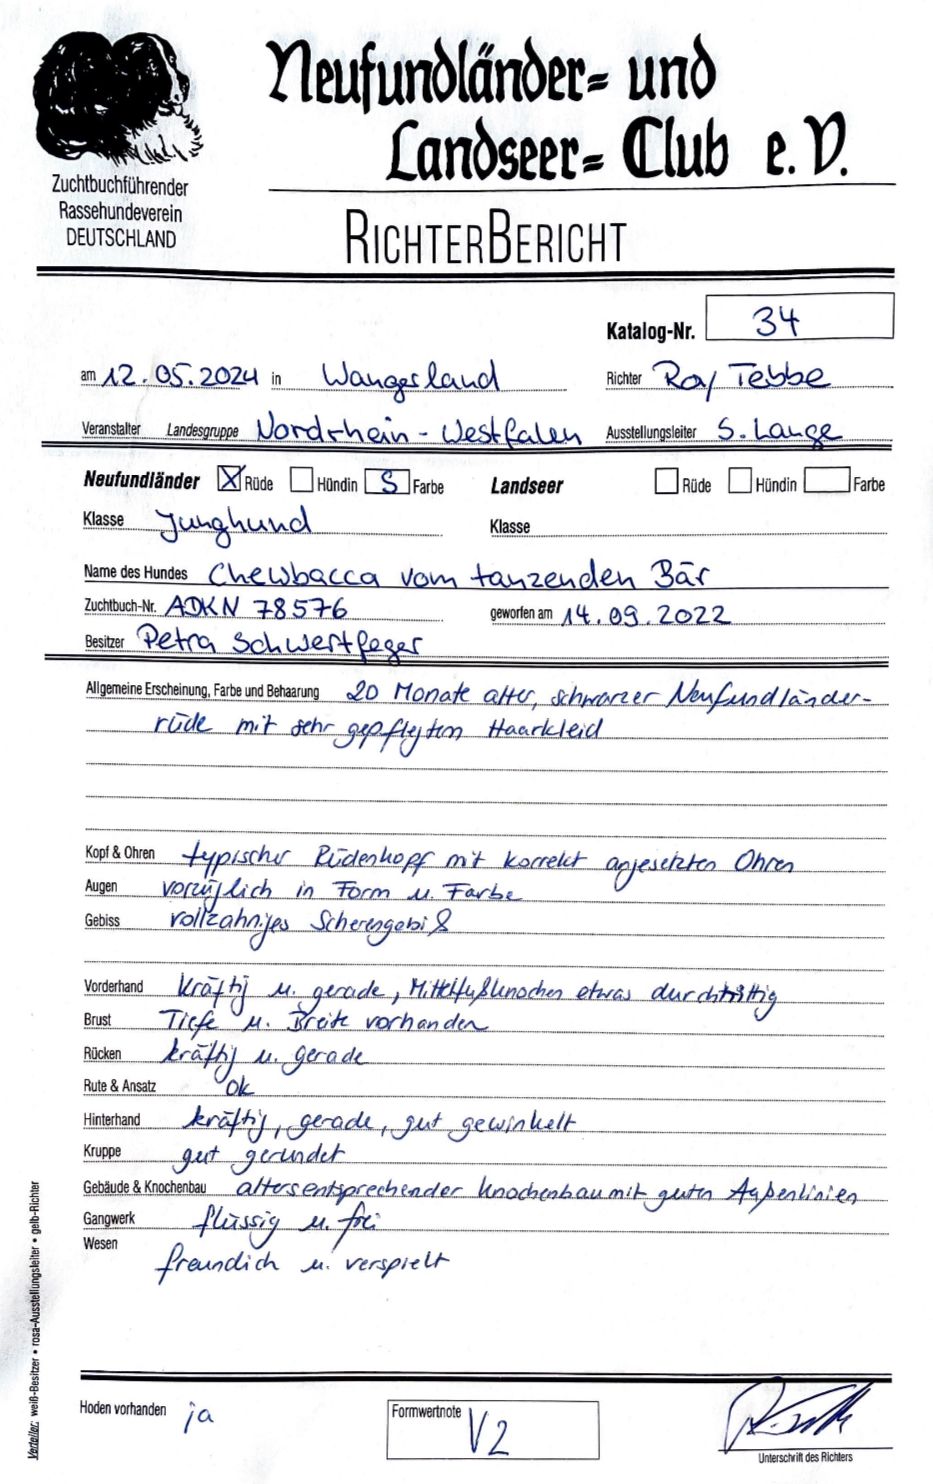 Neufundländer- und
Landseer-Club e.V.
Zuchtbuchführender
Rassehundeverein
DEUTSCHLAND
RICHTERBERICHT
Katalog-Nr. 34
am 12.05.2024 in Wangerland Richter Ray Tebbe
Veranstalter Landesgruppe Nordrhein-Westfalen Ausstellungsleiter S. Lange
Neufundländer X Rüde Hündin S Farbe Landseer Rüde Hündin Farbe
Klasse Junghund Klasse
Name des Hundes Chewbacca vom tanzenden Bär
Zuchtbuch-Nr. ADKN 78576 geworfen am 14.09.2022
Besitzer Petra Schwertfeger
Allgemeine Erscheinung, Farbe und Behaarung 20 Monate alter, schwarzer Neufundländer-
rüde mit sehr gepflegtem Haarkleid
Kopf & Ohren typischer Rüdenkopf mit korrekt angesetzten Ohren
Augen vorzüglich in Form u. Farbe
Gebiss vollzahniges Scherengebiß
Vorderhand kräftig u. gerade, Mittelfußknochen etwas durchtrittig
Brust Tiefe u. Breite vorhanden
Rücken kräftig u. gerade
Rute & Ansatz ok
Hinterhand kräftig, gerade, gut gewinkelt
Kruppe gut gerundet
Gebäude & Knochenbau altersentsprechender Knochenbau mit guten Außenlinien
Gangwerk flüssig u. frei
Wesen freundlich u. verspielt
Hoden vorhanden ja
Formwertnote V2
Unterschrift des Richters
Verteiler: weiß-Besitzer • rosa-Ausstellungsleiter • gelb-Richter